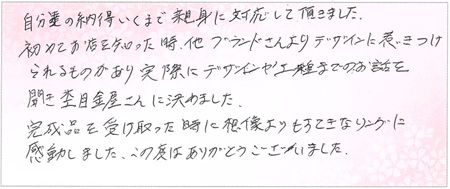 自分達の納得いくまで親身に対応して頂きました。
初めてお店を知った時、他ブランドさんよりデザインに惹きつけ
られるものがあり実際にデザインや工程までのお話を
聞き杢目金屋さんに決めました。
完成品を受け取った時に想像よりもすてきなリングに
感動しました。この度はありがとうございました。